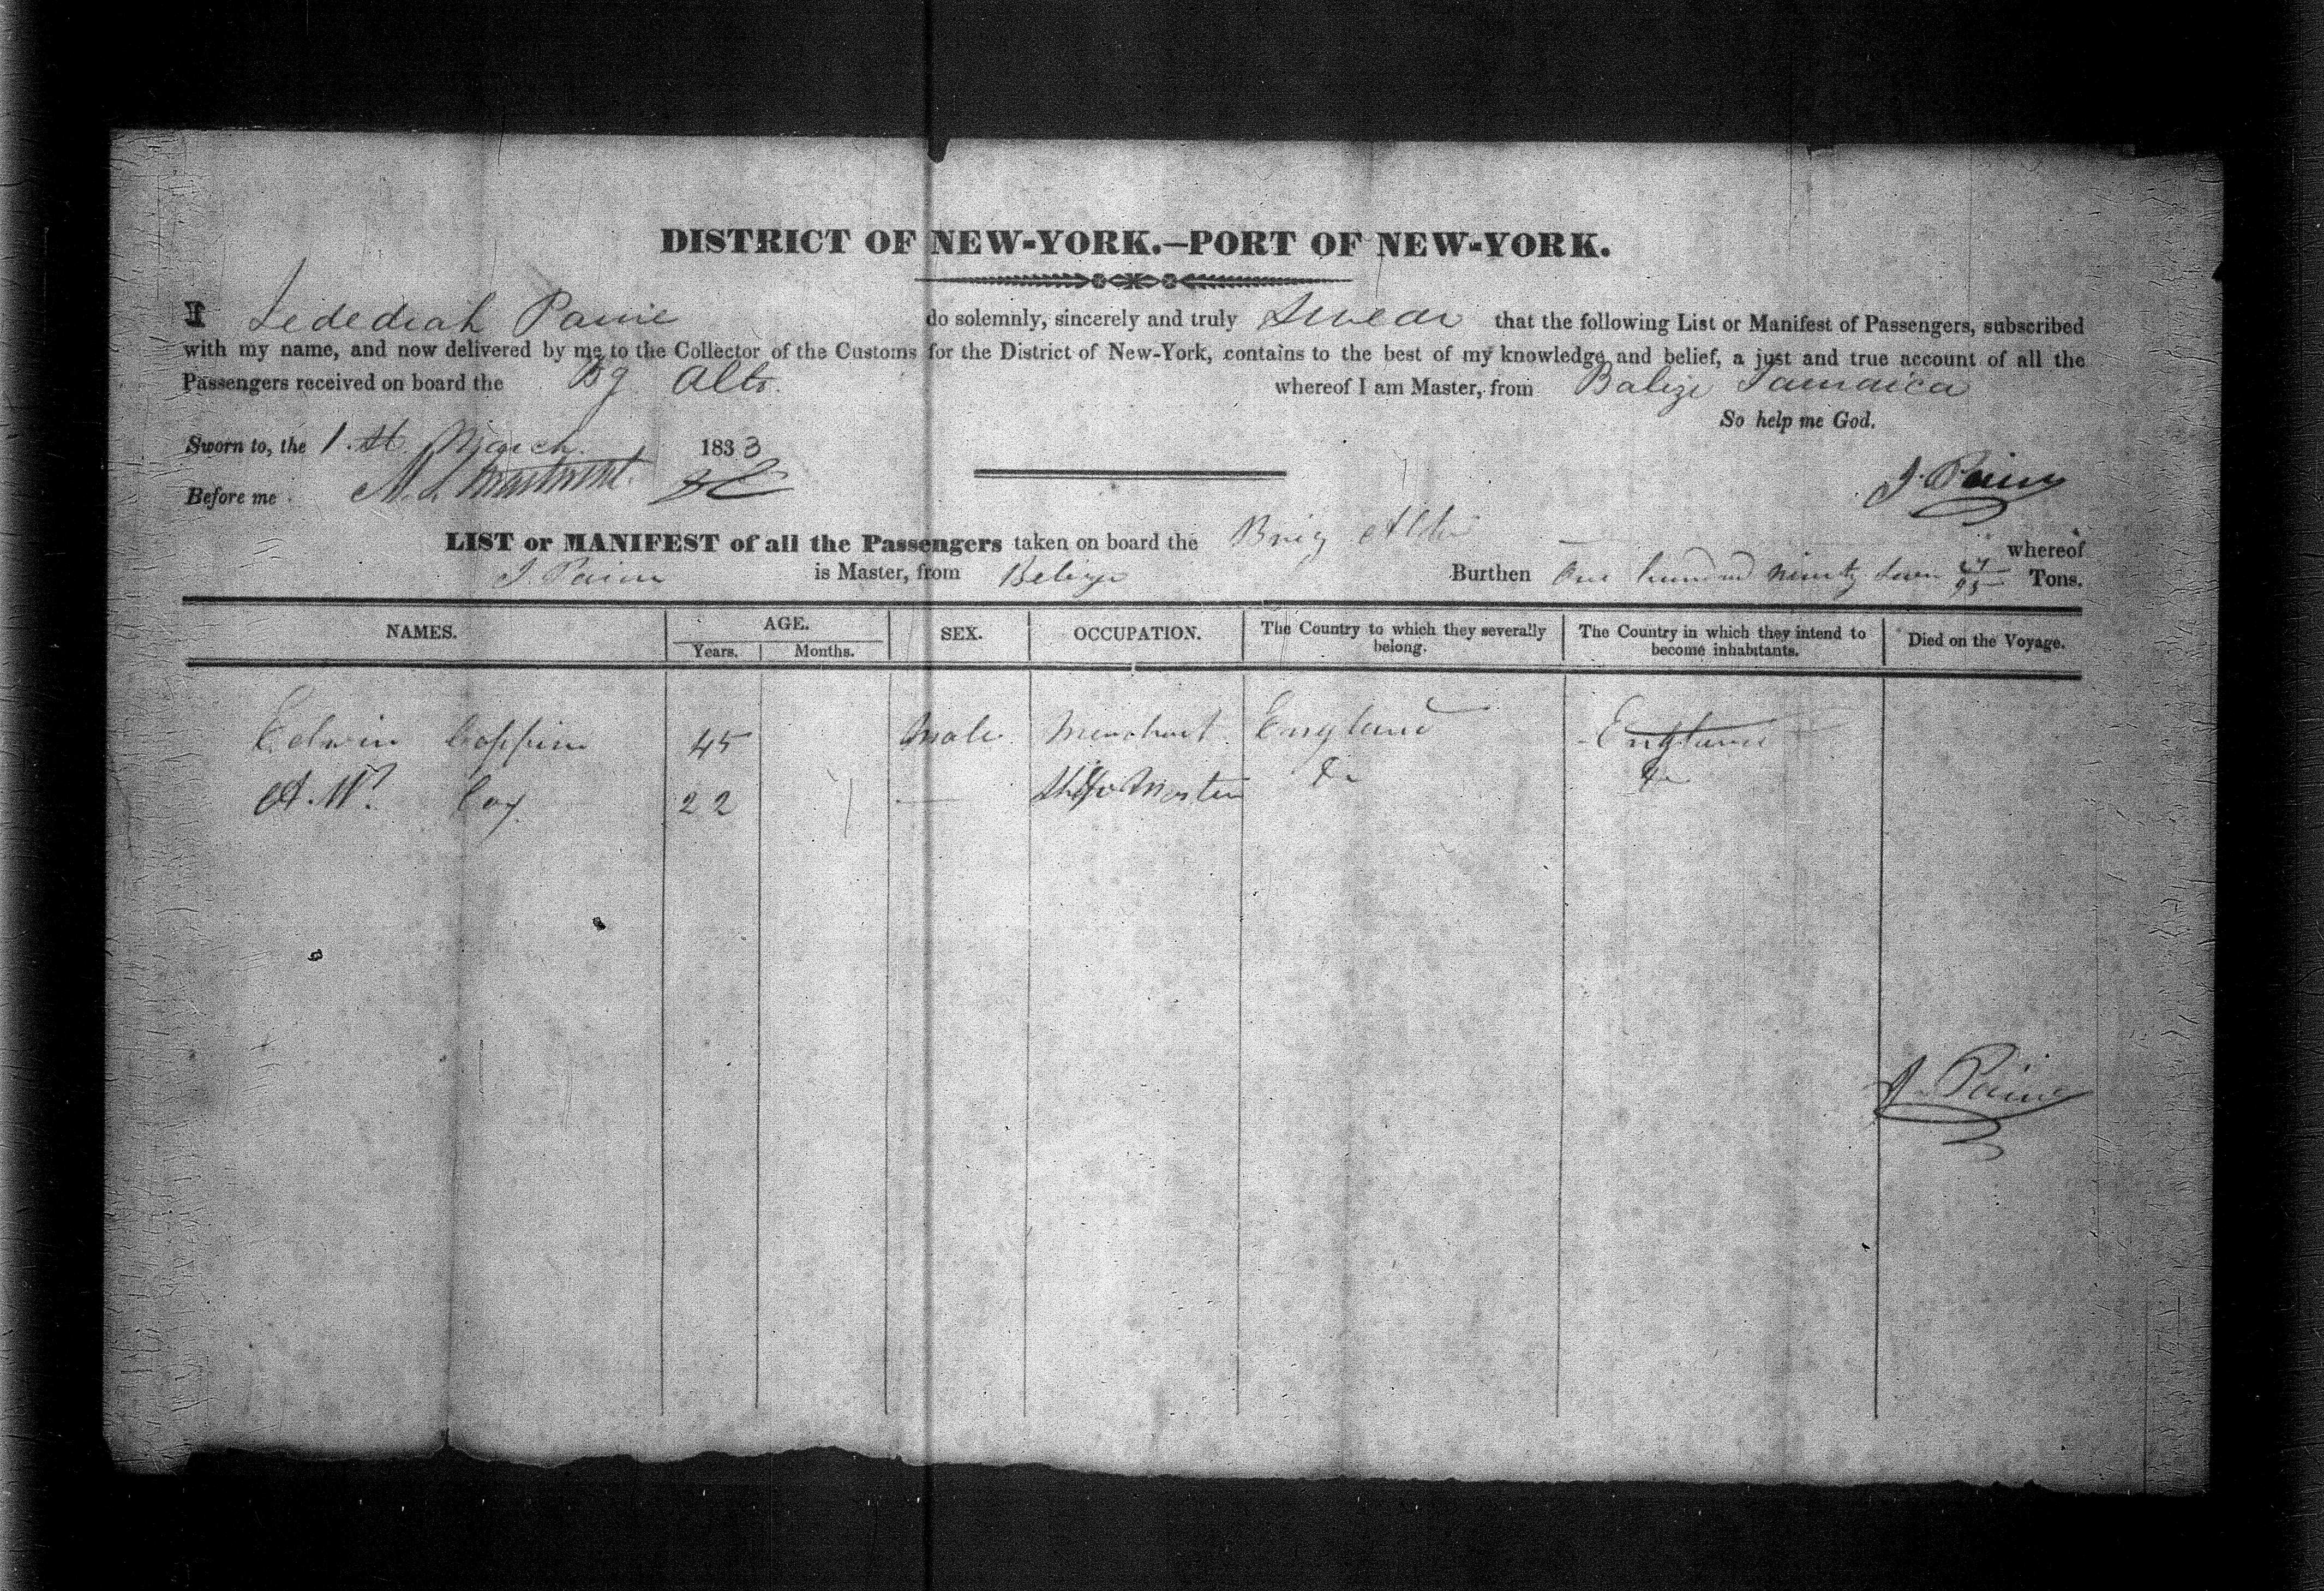 DISTRICT OF NEW-YORK.—PORT OF NEW-YORK.
I Jedediah Paine do solemnly, sincerely and truly Swear that the following List or Manifest of Passengers, subscribed
with my name, and now delivered by me to the Collector of the Customs for the District of New-York, contains to the best of my knowledge and belief, a just and true account of all the
Passengers received on board the Bg Alto. whereof I am Master, from Balize Jamaica
So help me God.
Sworn to, the 1.st March. 1833
Before me J. Paine
LIST or MANIFEST of all the Passengers taken on board the Brig Alto whereof
J. Paine is Master, from Belize Burthen One hundred ninety seven /95 Tons.
NAMES. AGE. SEX. OCCUPATION. The Country to which they severally belong. The Country in which they intend to become inhabitants. Died on the Voyage.
Years. Months.
Edwin 45 Male Merchant England England
22 — Ship Master Do Do
J. Paine